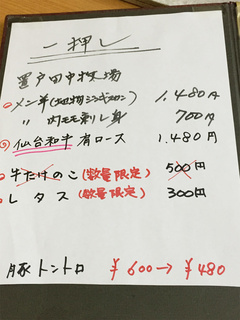 一押し
置戸田中牧場
メン羊(地物ジンギスカン) 1.480円
〃 内モモ刺し身 700円
仙台和牛肩ロース 1.480円
牛たけのこ(数量限定) 500円
レタス(数量限定) 300円
豚トントロ ¥600→¥480